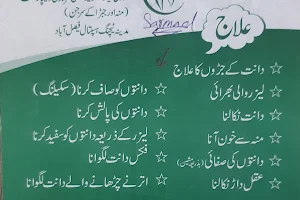 منہ اور جبڑا کے سرجن
مدینہ ٹیچنگ ہسپتال فیصل آباد
علاج
دانت کے جڑوں کا علاج
لیزر والی بھرائی
دانت نکالنا
منہ سے خون آنا
دانتوں کی صفائی
عقل داڑھ نکالنا
دانتوں کو صاف کرنا (سکیلنگ)
دانتوں کی پالش کرنا
لیزر کے ذریعہ دانتوں کو سفید کرنا
فکس دانت لگوانا
اترنے چڑھانے والے دانت لگوانا